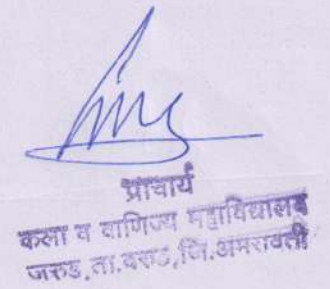 प्राचार्य
कला व वाणिज्य महाविद्यालय
जरुड,ता.वरुड,जि.अमरावती